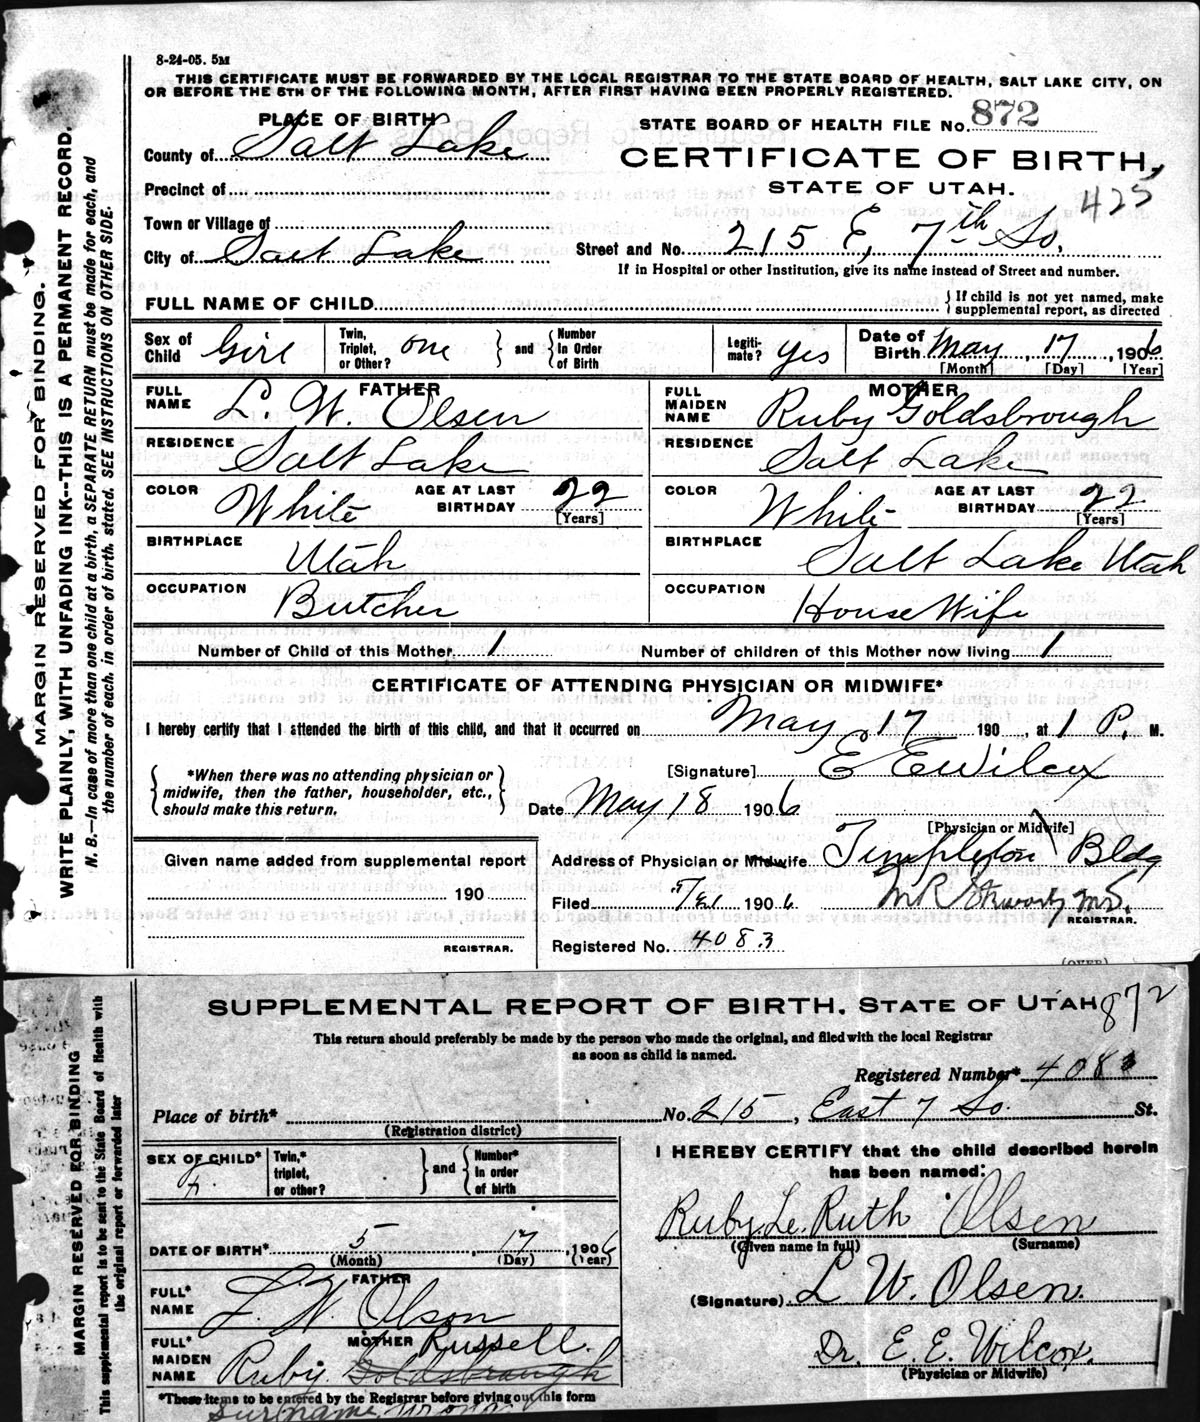 8-24-05. 5M
THIS CERTIFICATE MUST BE FORWARDED BY THE LOCAL REGISTRAR TO THE STATE BOARD OF HEALTH, SALT LAKE CITY, ON
OR BEFORE THE 5TH OF THE FOLLOWING MONTH, AFTER FIRST HAVING BEEN PROPERLY REGISTERED.
MARGIN RESERVED FOR BINDING.
WRITE PLAINLY, WITH UNFADING INK--THIS IS A PERMANENT RECORD.
N. B.—In case of more than one child at a birth, a SEPARATE RETURN must be made for each, and
the number of each, in order of birth, stated. SEE INSTRUCTIONS ON OTHER SIDE.
PLACE OF BIRTH
County of Salt Lake
Precinct of
Town or Village of
City of Salt Lake
STATE BOARD OF HEALTH FILE No. 872
CERTIFICATE OF BIRTH,
STATE OF UTAH.
425
Street and No. 215 E, 7th So,
If in Hospital or other Institution, give its name instead of Street and number.
FULL NAME OF CHILD
If child is not yet named, make
supplemental report, as directed
Sex of Child Girl
Twin, Triplet, or Other? one
and Number In Order of Birth
Legiti-mate? yes
Date of Birth May 17, 1906
[Month] [Day] [Year]
FATHER
FULL NAME L. W. Olsen
MOTHER
FULL MAIDEN NAME Ruby Goldsbrough
RESIDENCE Salt Lake
RESIDENCE Salt Lake
COLOR White AGE AT LAST BIRTHDAY 22 [Years]
COLOR White AGE AT LAST BIRTHDAY 22 [Years]
BIRTHPLACE Utah
BIRTHPLACE Salt Lake Utah
OCCUPATION Butcher
OCCUPATION House Wife
Number of Child of this Mother 1 Number of children of this Mother now living 1
CERTIFICATE OF ATTENDING PHYSICIAN OR MIDWIFE*
I hereby certify that I attended the birth of this child, and that it occurred on May 17 190 , at 1 P. M.
*When there was no attending physician or
midwife, then the father, householder, etc.,
should make this return.
[Signature] E E Wilcox
Date May 18 1906
[Physician or Midwife]
Address of Physician or Midwife Templeton Bldg
Given name added from supplemental report
190
REGISTRAR.
Filed 1906
REGISTRAR.
Registered No. 4083
(OVER)
SUPPLEMENTAL REPORT OF BIRTH. STATE OF UTAH
872
This return should preferably be made by the person who made the original, and filed with the local Registrar
as soon as child is named.
MARGIN RESERVED FOR BINDING
This supplemental report is to be sent to the State Board of Health with
the original report or forwarded later
Registered Number* 4083
Place of birth* No. 215, East 7 So. St.
(Registration district)
SEX OF CHILD* F.
Twin,* triplet, or other?
and Number* in order of birth
DATE OF BIRTH* 5 17, 1906
(Month) (Day) (Year)
FATHER
FULL* NAME L. W. Olson
MOTHER
FULL* MAIDEN NAME Ruby. Goldsbrough Russell.
*These items to be entered by the Registrar before giving out this form
surname wrong
I HEREBY CERTIFY that the child described herein
has been named:
Ruby Le Ruth Olsen
(Given name in full) (Surname)
(Signature) L W. Olsen.
Dr. E. E. Wilcox.
(Physician or Midwife)